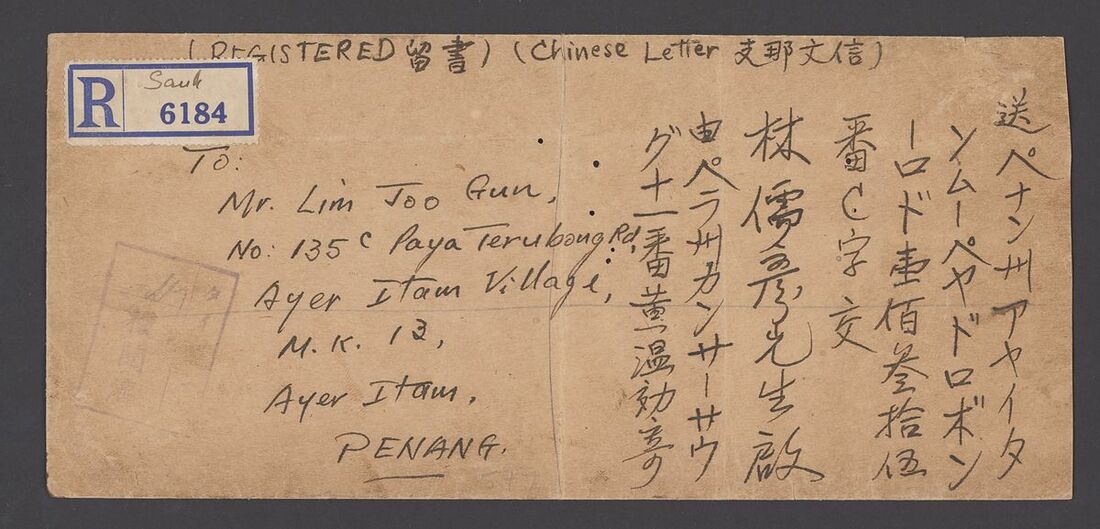 (REGISTERED 留書) (Chinese Letter 支那文信)
R Sauk 6184
To:
Mr. Lim Joo Gun,
No: 135 C Paya Terubong Rd,
Ayer Itam Village,
M.K. 13,
Ayer Itam,
PENANG.
送ペナン州アヤイタ
ンムーペヤドロボン
ーロド壹佰叁拾伍
番C.字交
林儒彥先生啟
由ペラ州カンサーサウ
グ十一番黄温効寄